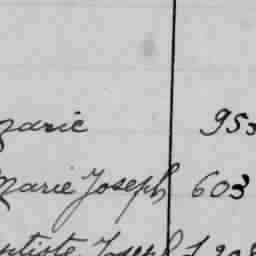 Marie 953
Marie Joseph 603
ptiste Joseph 1 208